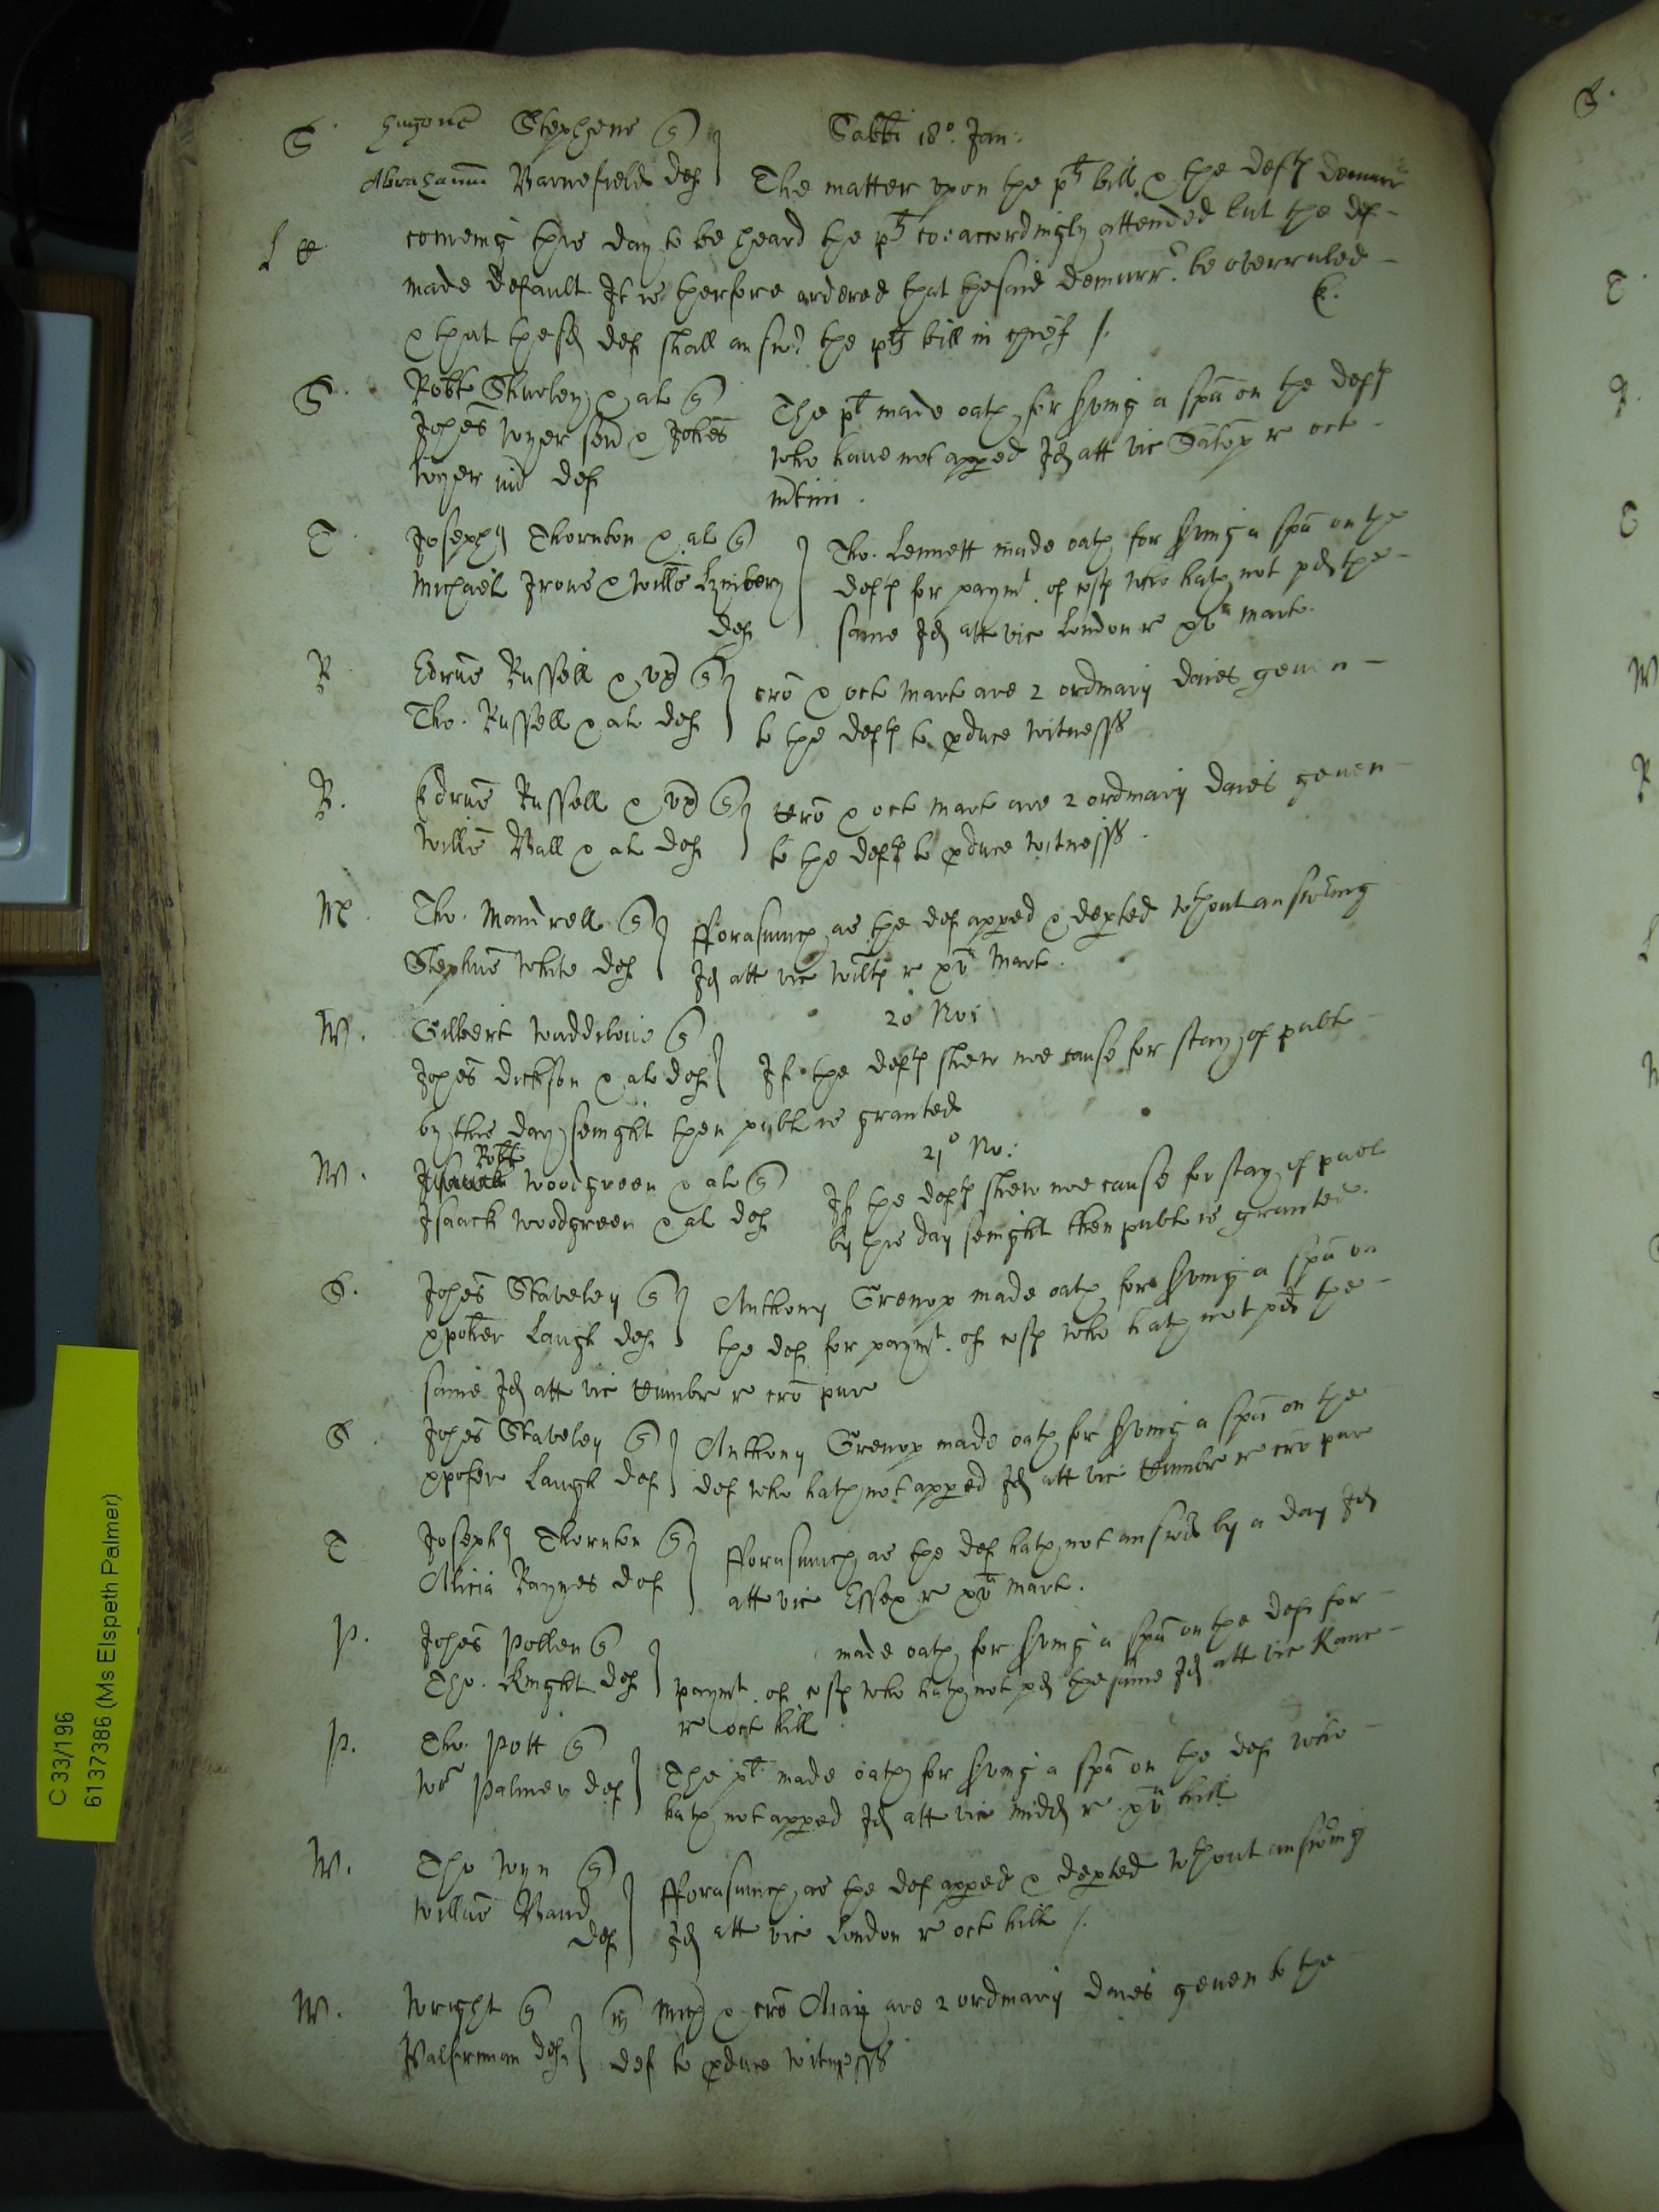 S. Hugone Stephens q Sabbi 18o. Jan:
Abrahamum Barnefield def The matter upon the plt bill & the defts demurr
comeing this day to be heard the plts co: accordingly attended but the def
made default It is therfore ordered that the said demurr. be overruled
& that the sd def shall answ: the plts bill in chief /.
S. Robte Shurley & al q The plt made oath for sving a spa on the defts
Johes Wyer sen & Johes who have not apped Id att vic Salop r oct
Wyer iud def
T. Joseph Thornton & al q Tho. Lennett made oath for sving a spa on the
Michael & Willo def defts for paymt. of costs who hath not pd the
def same Id att vic London r xva Marti.
R Edrus Russell & ux q cro & oct Mart are 2 ordinary daies geven
Tho. Russell & al def to the defts to pduce witnesses
R. Edrus Russell & ux q cro & oct Mart are 2 ordinary daies geven
Willo Ball & al def to the defts to pduce witnesses.
M. Tho. Mandrell q fforasmuch as the def apped & depted wthout answing
Stephus White def Id att vic Wilts r xva Mart.
W. Gilbert Waddilove q 20 No:
Johes Dickson & al def If the defts shew noe cause for stay of publ
by this day senight then publ is granted
Robt 21o No:
W. Woodgreen & al q If the defts shew noe cause for stay of publ
Isaack Woodgreen & al def by this day senight then publ is granted.
S. Johes Staveley q Anthony Grenop made oath for sving a spa on
xpofer Laugh def the def for paymt. of costs who hath not pd the
same Id att vic Numbr r cro pur
S. Johes Staveley q Anthony Grenop made oath for sving a spa on the
xpofer Laugh def def who hath not apped Id att vic Numbr r cro pur
T Joseph Thornton q fforasmuch as the def hath not answd by a day Id
Alicia Baynes def att vic Essex r xva Mart.
P. Johes Pollen q made oath for sving a spa on the def for
Tho. Knight def paymt. of costs who hath not pd the same Id att vic Kanc
r oct hill
P. Tho. Pott q The plt made oath for sving a spa on the def who
Wm Palmer def hath not apped Id att vic Midd r xva hill
W. Tho Wyn q fforasmuch as the def apped & depted wthout answing
Willus Band Id att vic London r oct hill /.
def
W. Wright q Mich & cro May are 2 ordinary daies geven to the
Palferman def def to pduce witnesses
C 33/196
6137386 (Ms Elspeth Palmer)